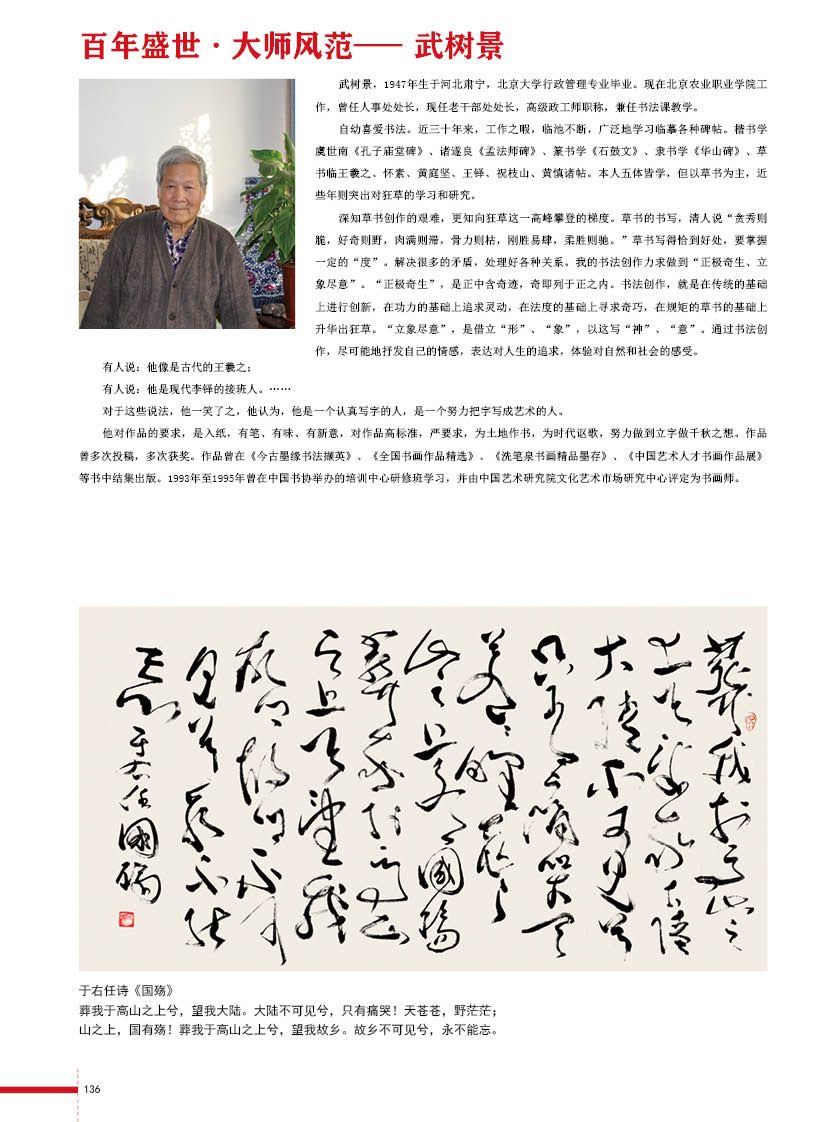 百年盛世·大师风范—— 武树景
武树景，1947年生于河北肃宁，北京大学行政管理专业毕业。现在北京农业职业学院工
作，曾任人事处处长，现任老干部处处长，高级政工师职称，兼任书法课教学。
自幼喜爱书法。近三十年来，工作之暇，临池不断，广泛地学习临摹各种碑帖。楷书学
虞世南《孔子庙堂碑》、诸遂良《孟法师碑》、篆书学《石鼓文》、隶书学《华山碑》、草
书临王羲之、怀素、黄庭坚、王铎、祝枝山、黄慎诸帖。本人五体皆学，但以草书为主，近
些年则突出对狂草的学习和研究。
深知草书创作的艰难，更知向狂草这一高峰攀登的梯度。草书的书写，清人说“贪秀则
脆，好奇则野，肉满则滞，骨力则枯，刚胜易肆，柔胜则驰。”草书写得恰到好处，要掌握
一定的“度”。解决很多的矛盾，处理好各种关系。我的书法创作力求做到“正极奇生、立
象尽意”。“正极奇生”，是正中含奇迹，奇即列于正之内。书法创作，就是在传统的基础
上进行创新，在功力的基础上追求灵动，在法度的基础上寻求奇巧，在规矩的草书的基础上
升华出狂草。“立象尽意”，是借立“形”、“象”，以这写“神”、“意”。通过书法创
作，尽可能地抒发自己的情感，表达对人生的追求，体验对自然和社会的感受。
有人说：他像是古代的王羲之；
有人说：他是现代李铎的接班人。……
对于这些说法，他一笑了之，他认为，他是一个认真写字的人，是一个努力把字写成艺术的人。
他对作品的要求，是入纸，有笔、有味、有新意，对作品高标准，严要求，为土地作书，为时代讴歌，努力做到立字做千秋之想。作品
曾多次投稿，多次获奖。作品曾在《今古墨缘书法撷英》、《全国书画作品精选》、《洗笔泉书画精品墨存》、《中国艺术人才书画作品展》
等书中结集出版。1993年至1995年曾在中国书协举办的培训中心研修班学习，并由中国艺术研究院文化艺术市场研究中心评定为书画师。
于右任诗《国殇》
葬我于高山之上兮，望我大陆。大陆不可见兮，只有痛哭！天苍苍，野茫茫；
山之上，国有殇！葬我于高山之上兮，望我故乡。故乡不可见兮，永不能忘。
136